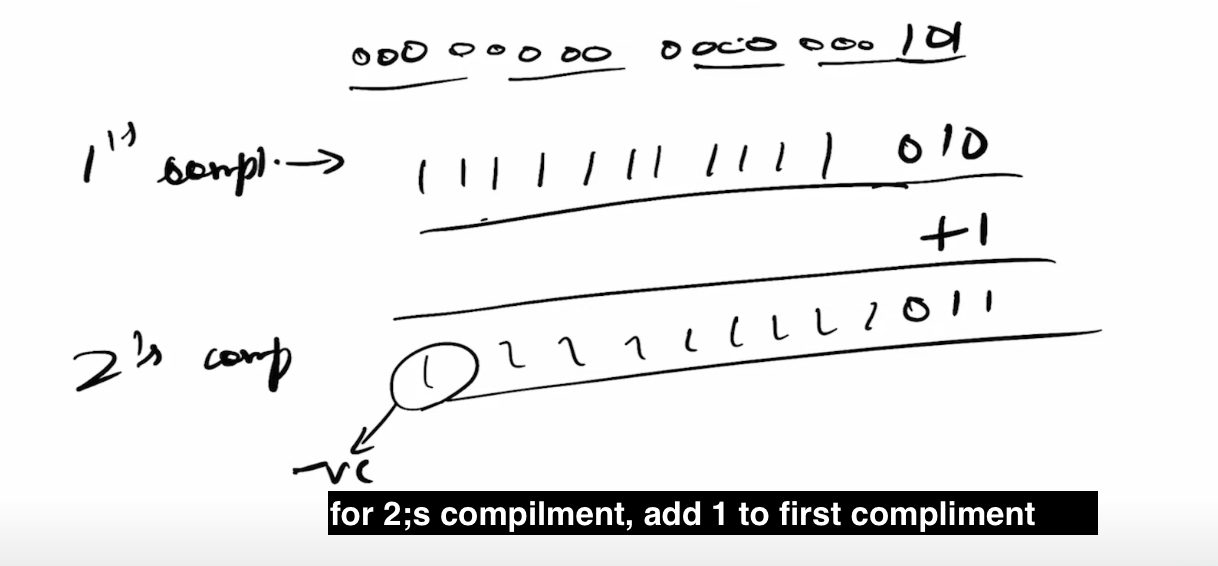 000 00 0 00 0 000 000 101
1's compl. → 1 1 1 1 1 1 1 1 1 1 1 010
+1
2's comp 1 1 1 1 1 1 1 1 1 0 1 1
-ve
for 2;s compilment, add 1 to first compliment